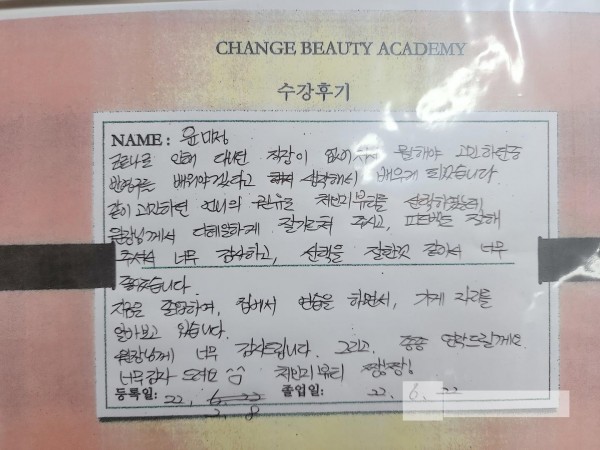 CHANGE BEAUTY ACADEMY
수강후기
NAME: 윤미정
코로나로 인해 다니던 직장이 없어지 뭘해야 고민하던중
반영구를 배워야겠다고 생각해서 배우게 되었습니다
같이 고민하던 언니의 권유로 체인지뷰티를 선택하였는데
원장님께서 디테일하게 잘가르쳐 주시고, 피드백도 잘해
주셔서 너무 감사하고, 선택을 잘한것 같아서 너무
좋았습니다.
지금은 졸업하여, 집에서 연습을 하면서, 가게 자리를
알아보고 있습니다.
원장님께 너무 감사드립니다. 그리고 종종 연락드릴께요
너무감사 드려요 ^^ 체인지뷰티 짱!짱!
등록일: 22. 6. 22 졸업일: 22. 6. 22
2. 8